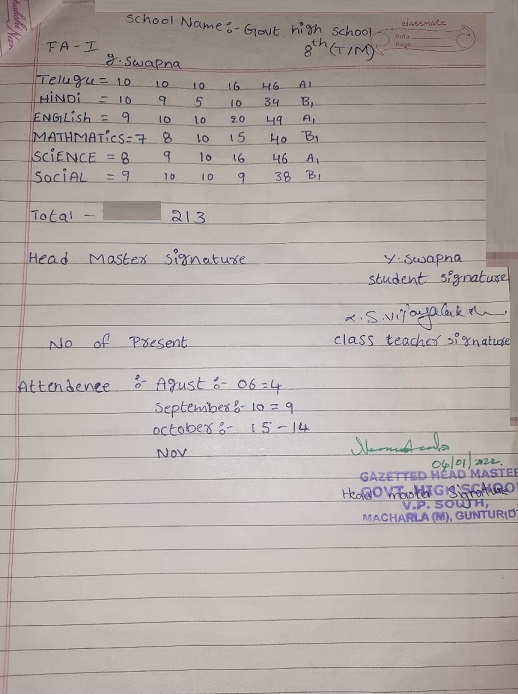 School Name:- Govt. high school
classmate
Date
Page
FA-I
8th (T/M)
y. swapna
Telugu = 10 10 10 16 46 A1
HiNDi = 10 9 5 10 34 B1
ENGLish = 9 10 10 20 49 A1
MATHMATics = 7 8 10 15 40 B1
SCiENCE = 8 9 10 16 46 A1
SociAL = 9 10 10 9 38 B1
Total - 213
Head Master Signature
Y. Swapna
student signature
S. Vijayalak
No of Present
class teacher signature
Attendence :- Agust :- 06 = 4
September :- 10 = 9
october :- 15 - 14
Nov
04/01/2022.
GAZETTED HEAD MASTER
Head master Signature
GOVT. HIGH SCHOO
V.P. SOUTH,
MACHARLA (M), GUNTUR(D